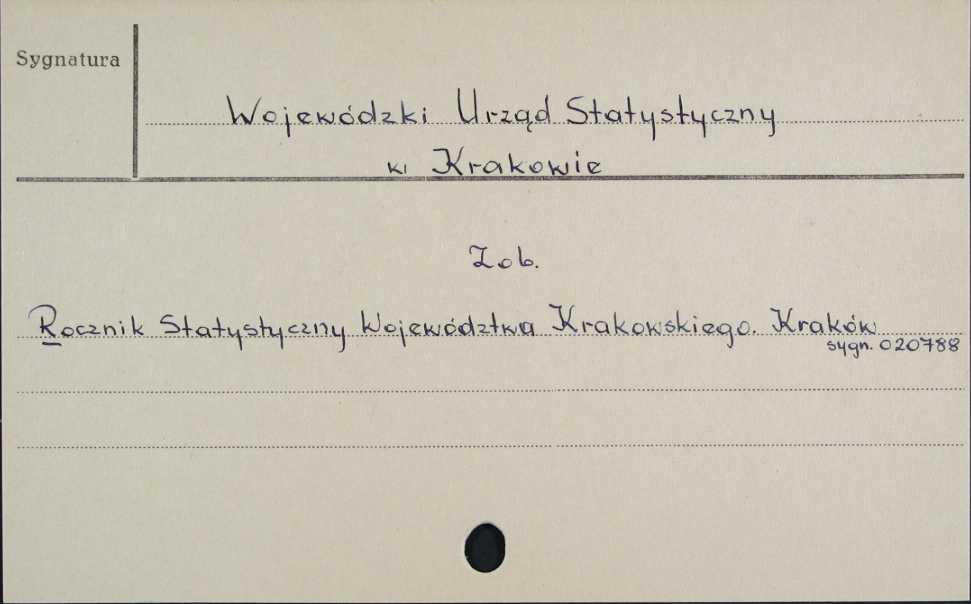 Sygnatura
Wojewódzki Urząd Statystyczny
w Krakowie
Zob.
Rocznik Statystyczny Województwa Krakowskiego. Kraków
sygn. 020788